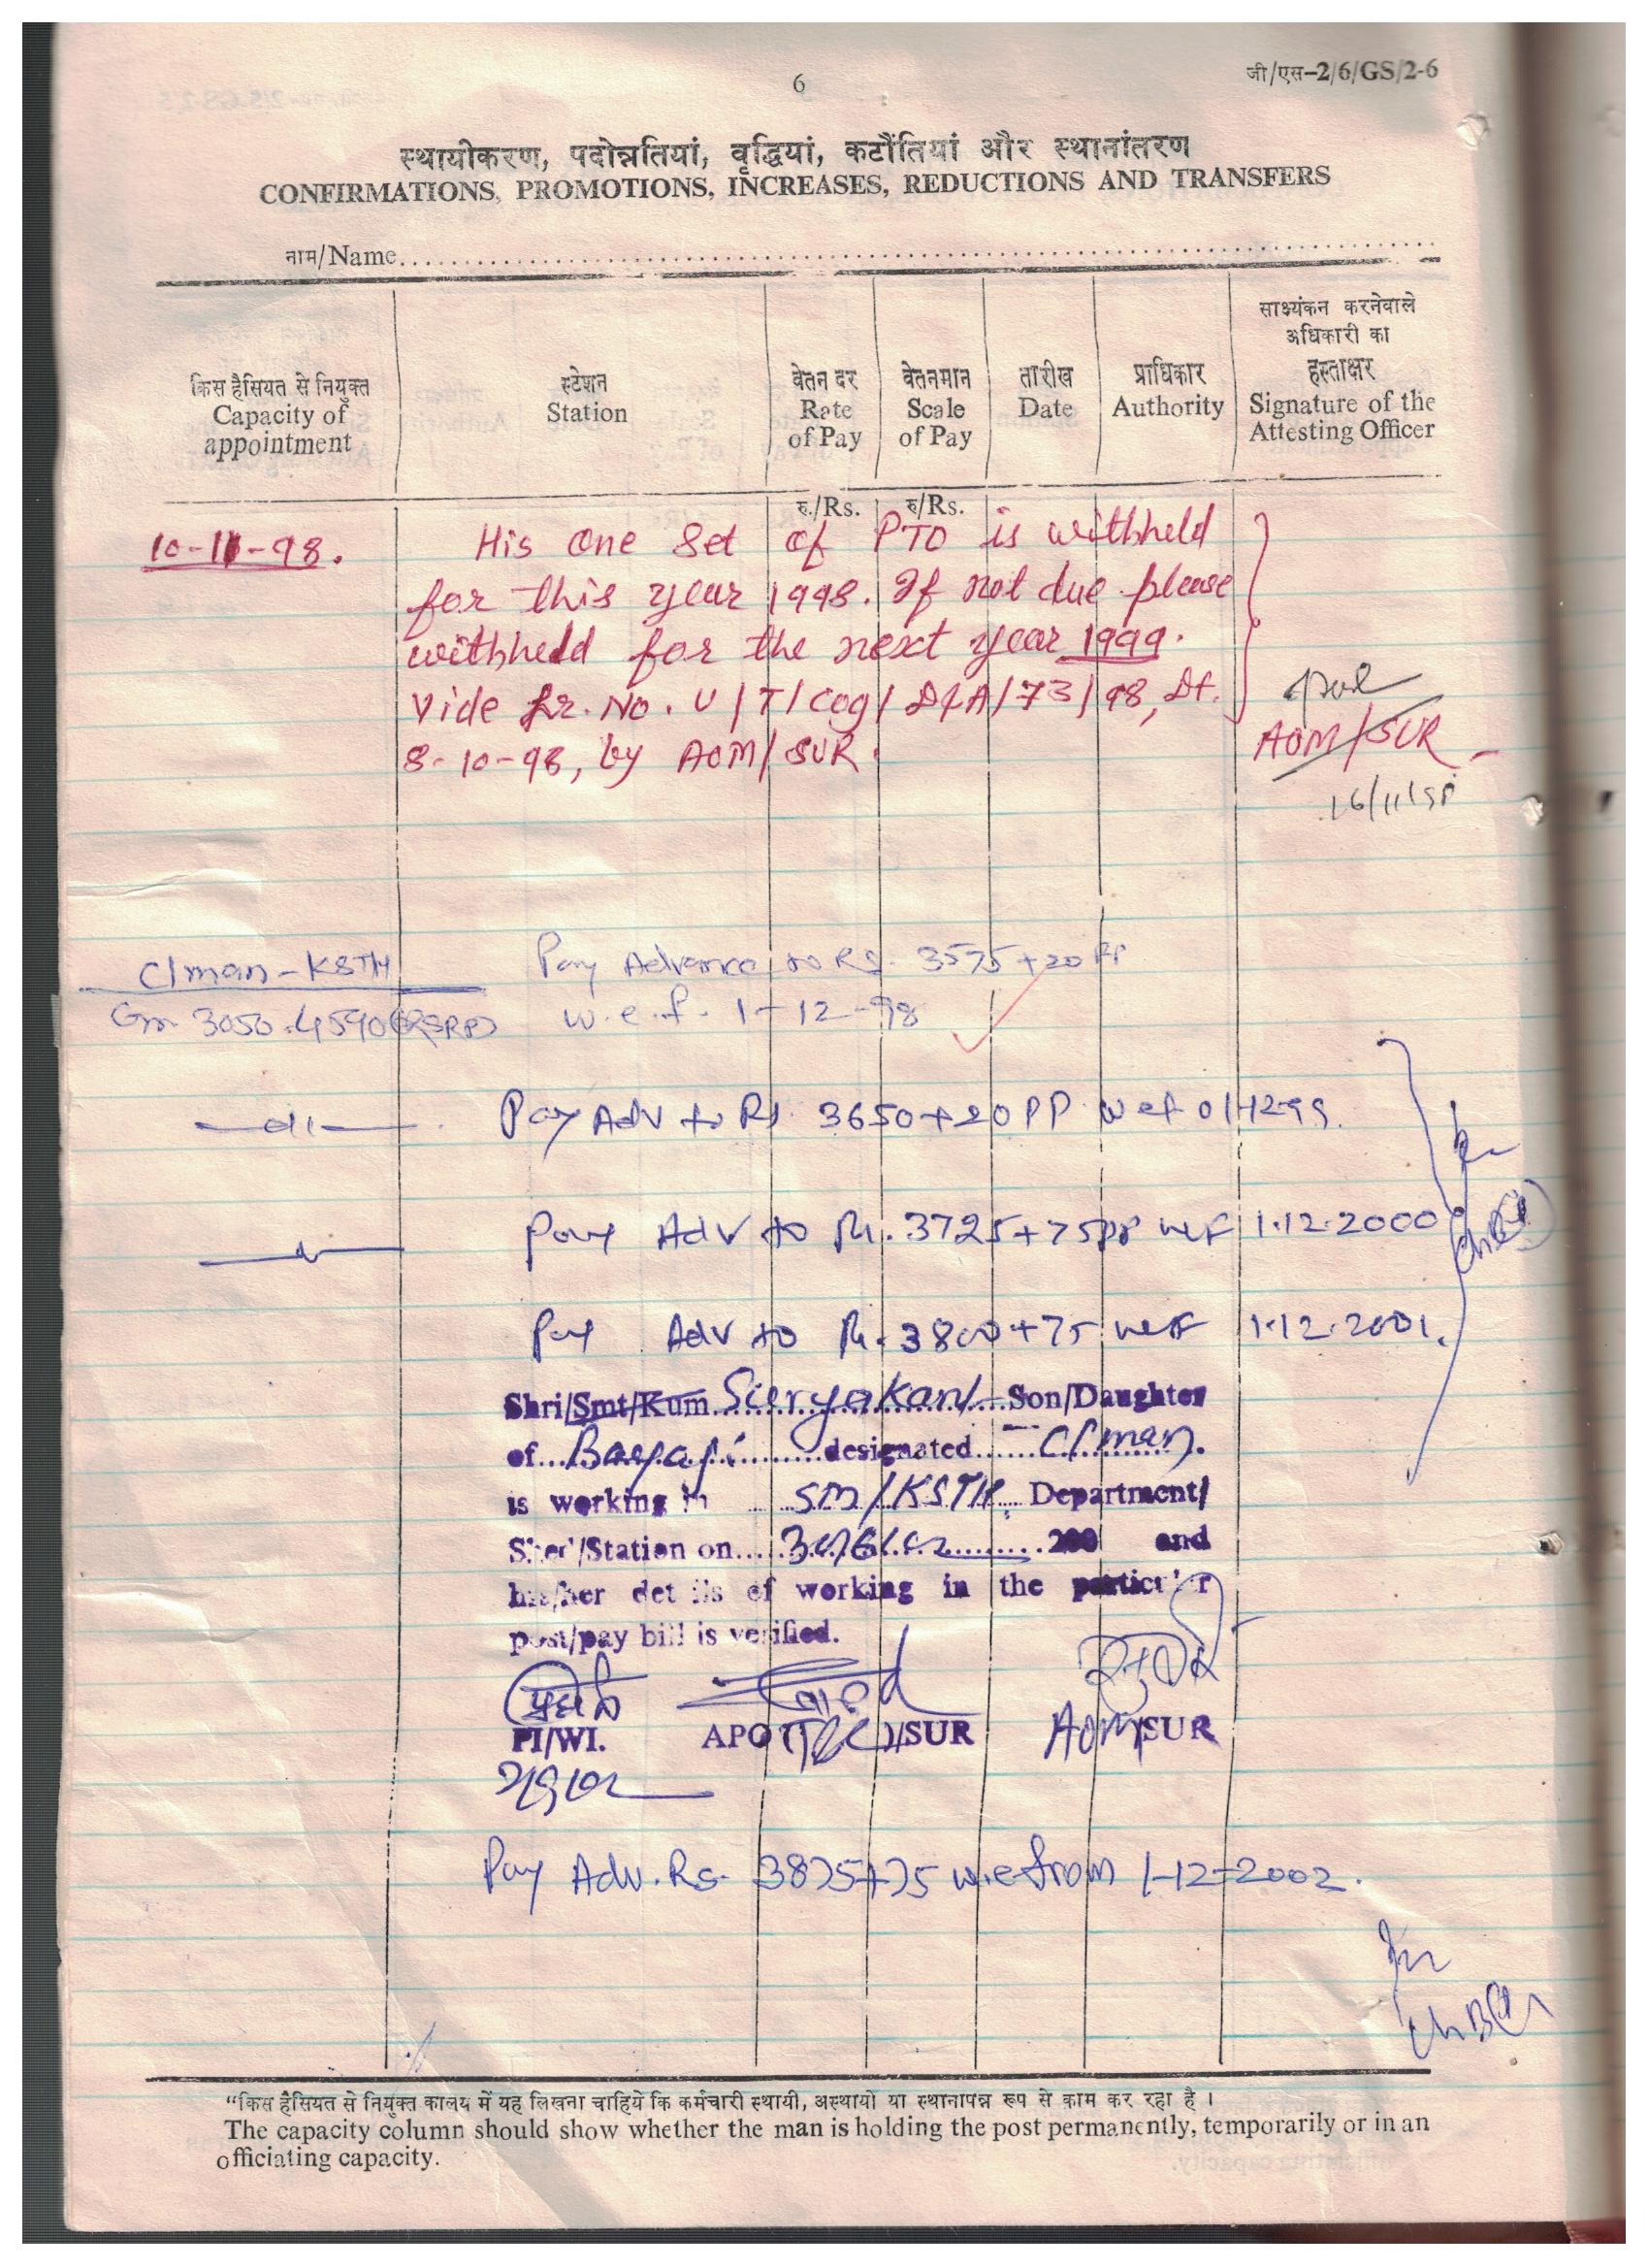 6
जी/एस-2/6/GS/2-6
स्थायीकरण, पदोन्नतियां, वृद्धियां, कटौंतियां और स्थानांतरण
CONFIRMATIONS, PROMOTIONS, INCREASES, REDUCTIONS AND TRANSFERS
नाम/Name
किस हैसियत से नियुक्त
Capacity of
appointment
स्टेशन
Station
वेतन दर
Rate
of Pay
वेतनमान
Scale
of Pay
तारीख
Date
प्राधिकार
Authority
साक्ष्यंकन करनेवाले
अधिकारी का
हस्ताक्षर
Signature of the
Attesting Officer
रु./Rs. रु/Rs.
10-11-98. His one Set of PTO is withheld
for this year 1998. If not due please
withheld for the next year 1999.
Vide Lr. No. U/T/Cog/D&A/73/98, Dt.
8-10-98, by AOM/SUR.
AOM/SUR
16/11/98
C/man-KSTH Pay Advance to Rs. 3575+20 PP
Gr. 3050-4590 (RSRP) w.e.f. 1-12-98
Pay Adv to Rs 3650+20 PP wef 01-12-99.
Pay Adv to Rs. 3725+75 PP wef 1.12.2000
Pay Adv to Rs. 3800+75 wef 1.12.2001.
Shri/Smt/Kum Suryakant Son/Daughter
of Bayaji designated C/man.
is working in SM/KSTH Department/
Shed/Station on 30/6/02 200 and
his/her details of working in the particular
post/pay bill is verified.
PI/WI. APO ( )/SUR AOM/SUR
Pay Adv. Rs. 3875+75 w.e from 1-12-2002.
"किस हैसियत से नियुक्त कालय में यह लिखना चाहिये कि कर्मचारी स्थायी, अस्थायो या स्थानापन्न रूप से काम कर रहा है ।
The capacity column should show whether the man is holding the post permanently, temporarily or in an
officiating capacity.